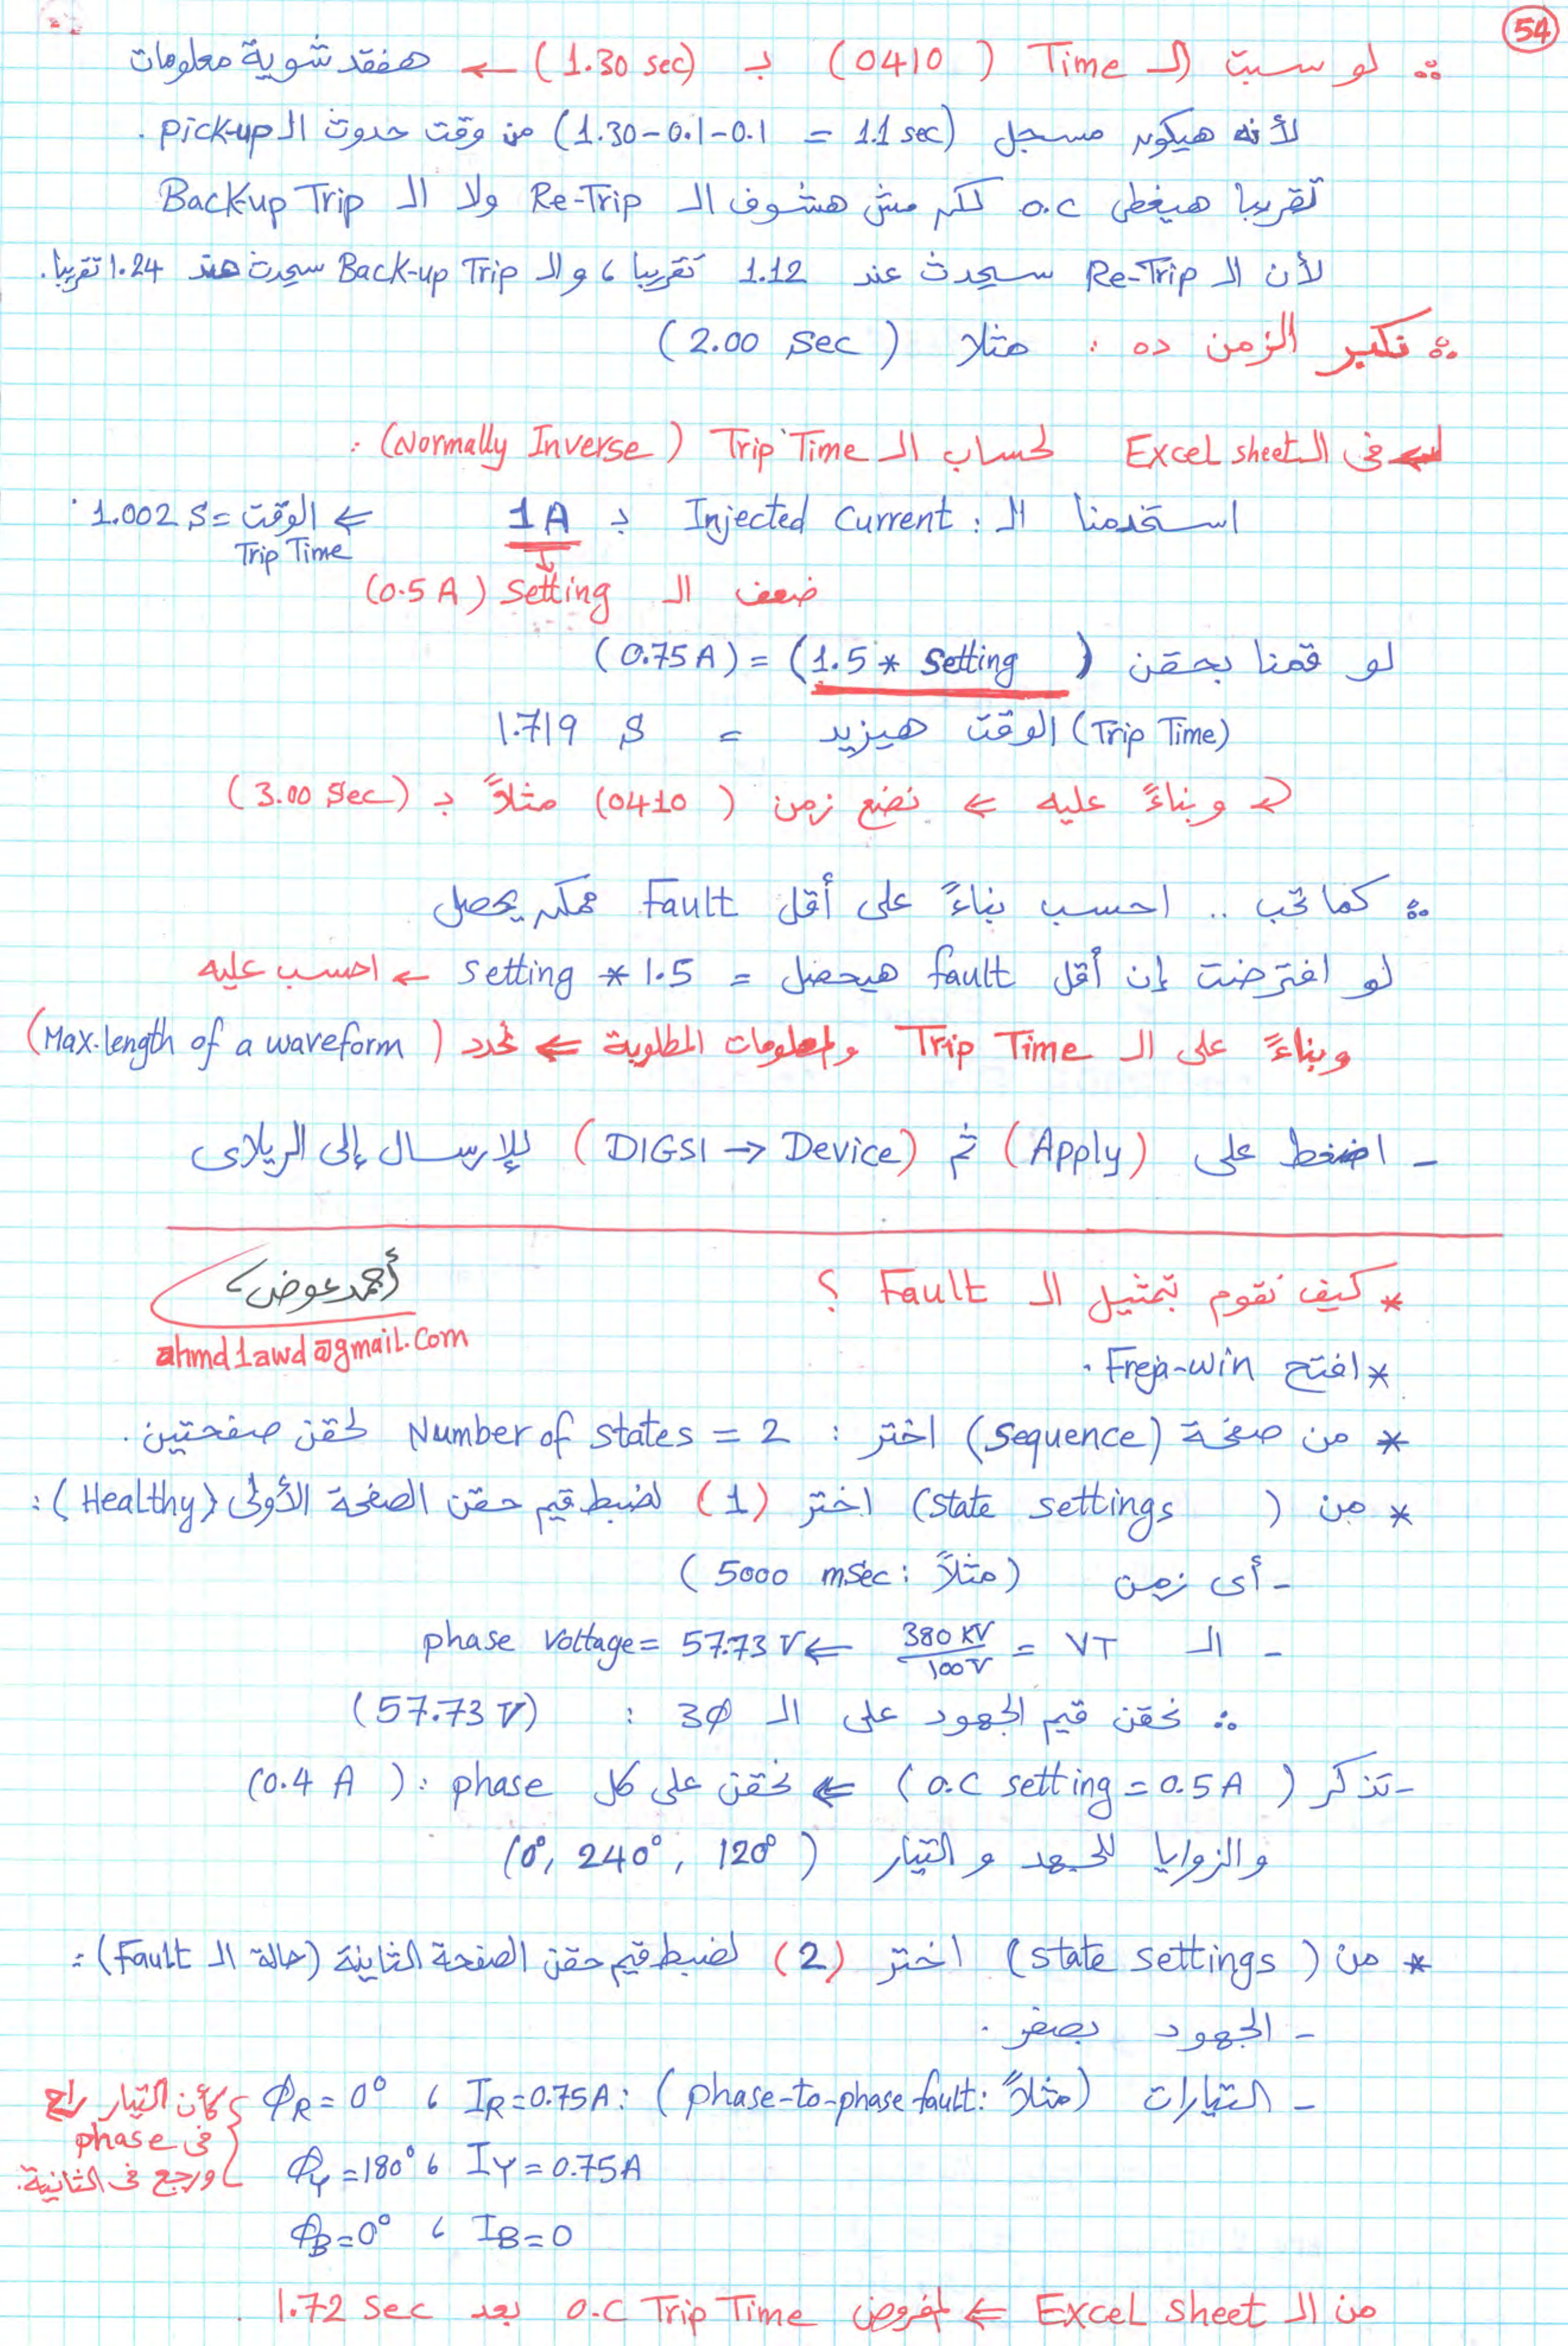 54
∴ لو سبت الـ Time (0410) بـ (1.30 sec) ← هفقد شوية معلومات
لأنه هيكون مسجل (1.30-0.1-0.1 = 1.1 sec) من وقت حدوث الـ pick-up .
تقريبا هيغطى o.c لكن مش هشوف الـ Re-Trip ولا الـ Back-up Trip
لأن الـ Re-Trip سيحدث عند 1.12 تقريبا ، والـ Back-up Trip سيحدث عند 1.24 تقريبا.
∴ نكبر الزمن ده : مثلا (2.00 sec)
← فى الـ Excel sheet لحساب الـ Trip Time (Normally Inverse) :
استخدمنا الـ Injected Current : بـ 1A ⇐ الوقت = 1.002 S .
Trip Time
ضعف الـ setting (0.5 A)
لو قمنا بحقن (1.5 * setting) = (0.75 A)
(Trip Time) الوقت هيزيد = 1.719 S
وبناءً عليه ⇐ نضع زمن (0410) مثلاً بـ (3.00 sec)
∴ كما تحب .. احسب بناءً على أقل Fault ممكن يحصل
لو افترضت إن أقل fault هيحصل = 1.5 * setting ← احسب عليه
وبناءً على الـ Trip Time والمعلومات المطلوبة ⇐ نحدد (Max.length of a waveform)
- اضغط على (Apply) ثم (DIGSI → Device) للإرسال إلى الريلاى
أحمد عوض
ahmd1awd@gmail.com
* كيف نقوم بتمثيل الـ Fault ؟
* افتح Freja-win .
* من صفحة (sequence) اختر : Number of states = 2 لحقن صفحتين .
* من (state settings) اختر (1) لضبط قيم حقن الصفحة الأولى (Healthy) :
- أى زمن (مثلاً : 5000 msec)
- الـ VT = 380 KV / 100 V ⇐ phase voltage = 57.73 V
∴ نحقن قيم الجهود على الـ 3Ø : (57.73 V)
- تذكر (o.c setting = 0.5 A) ⇐ نحقن على كل phase : (0.4 A)
والزوايا للجهد و التيار (0°, 240°, 120°)
* من (state settings) اختر (2) لضبط قيم حقن الصفحة الثاينة (حالة الـ Fault) :
- الجهود بصفر .
- التيارات (مثلاً : phase-to-phase fault) : IR = 0.75A ، ΦR = 0°
IY = 0.75A ، ΦY = 180°
IB = 0 ، ΦB = 0°
كأن التيار راح
فى phase
ورجع فى الثانية.
من الـ Excel sheet ⇐ المفروض o.c Trip Time بعد 1.72 sec .